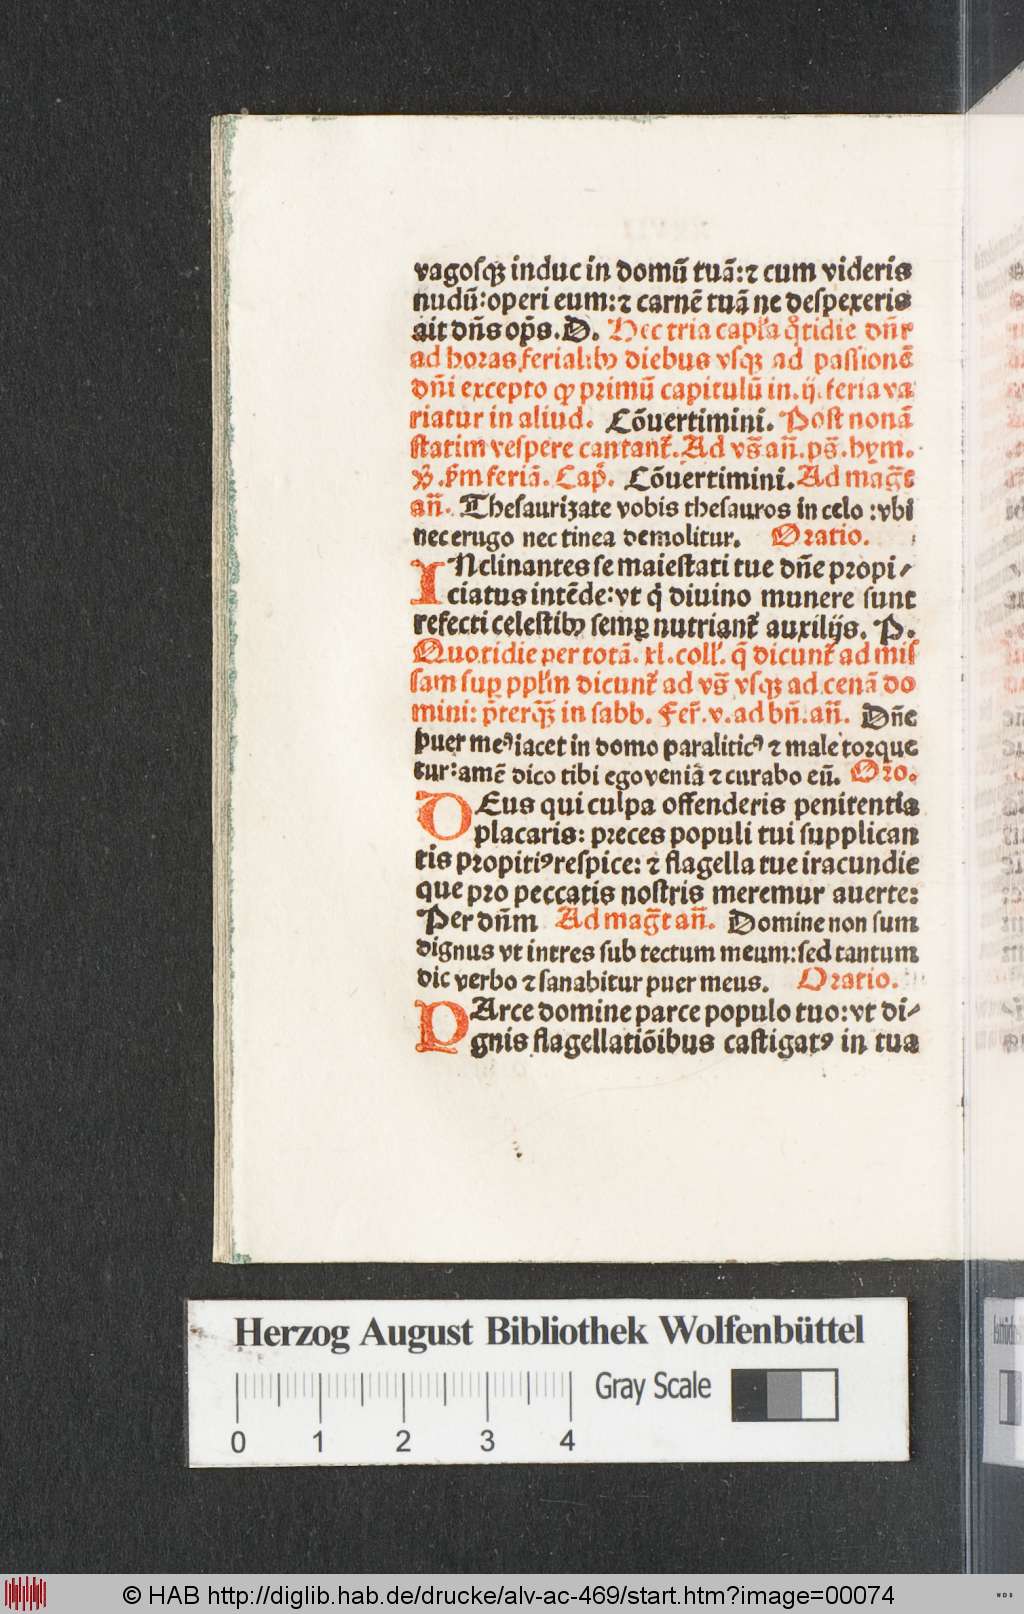 vagosqꝫ induc in domū tuā: ⁊ cum videris
nudū: operi eum: ⁊ carnē tuā ne despexeris
ait dn̄s op̄s. D. Hec tria capl'a q̊tidie dn̄r
ad horas ferialibꝰ diebus vsqꝫ ad passionē
dn̄i excepto ꝙ primū capitulū in .ij. feria va
riatur in aliud. Cōuertimini. Post nonā
statim vespere cantant̄. Ad vs̄ an̄. ps̄. hym.
℣. p̄m feriā. Cap̄. Cōuertimini. Ad maḡt
an̄. Thesaurizate vobis thesauros in celo : vbi
nec erugo nec tinea demolitur. Oratio.
INclinantes se maiestati tue dn̄e propi⸗
ciatus intēde: vt q̇ diuino munere sunt
refecti celestibꝰ semꝑ nutriant̄ auxilijs. P.
Quotidie per totā .xl. coll'. q̄ dicunt̄ ad mis
sam suꝑ ppl'm dicunt̄ ad vs̄ vsqꝫ ad cenā do
mini: p̄terqꝫ̄ in sabb. Fer̄. v. ad bn̄. an̄. Dn̄e
puer meꝰ iacet in domo paraliticꝰ ⁊ male torque
tur: amē dico tibi ego veniā ⁊ curabo eū. Oro.
DEus qui culpa offenderis penitentia
placaris: preces populi tui supplican
tis propitiꝰ respice: ⁊ flagella tue iracundie
que pro peccatis nostris meremur auerte:
Per dn̄m Ad maḡt an̄. Domine non sum
dignus vt intres sub tectum meum: sed tantum
dic verbo ⁊ sanabitur puer meus. Oratio.
PArce domine parce populo tuo: vt di⸗
gnis flagellatiōibus castigatꝰ in tua
Herzog August Bibliothek Wolfenbüttel
Gray Scale
0 1 2 3 4
© HAB http://diglib.hab.de/drucke/alv-ac-469/start.htm?image=00074